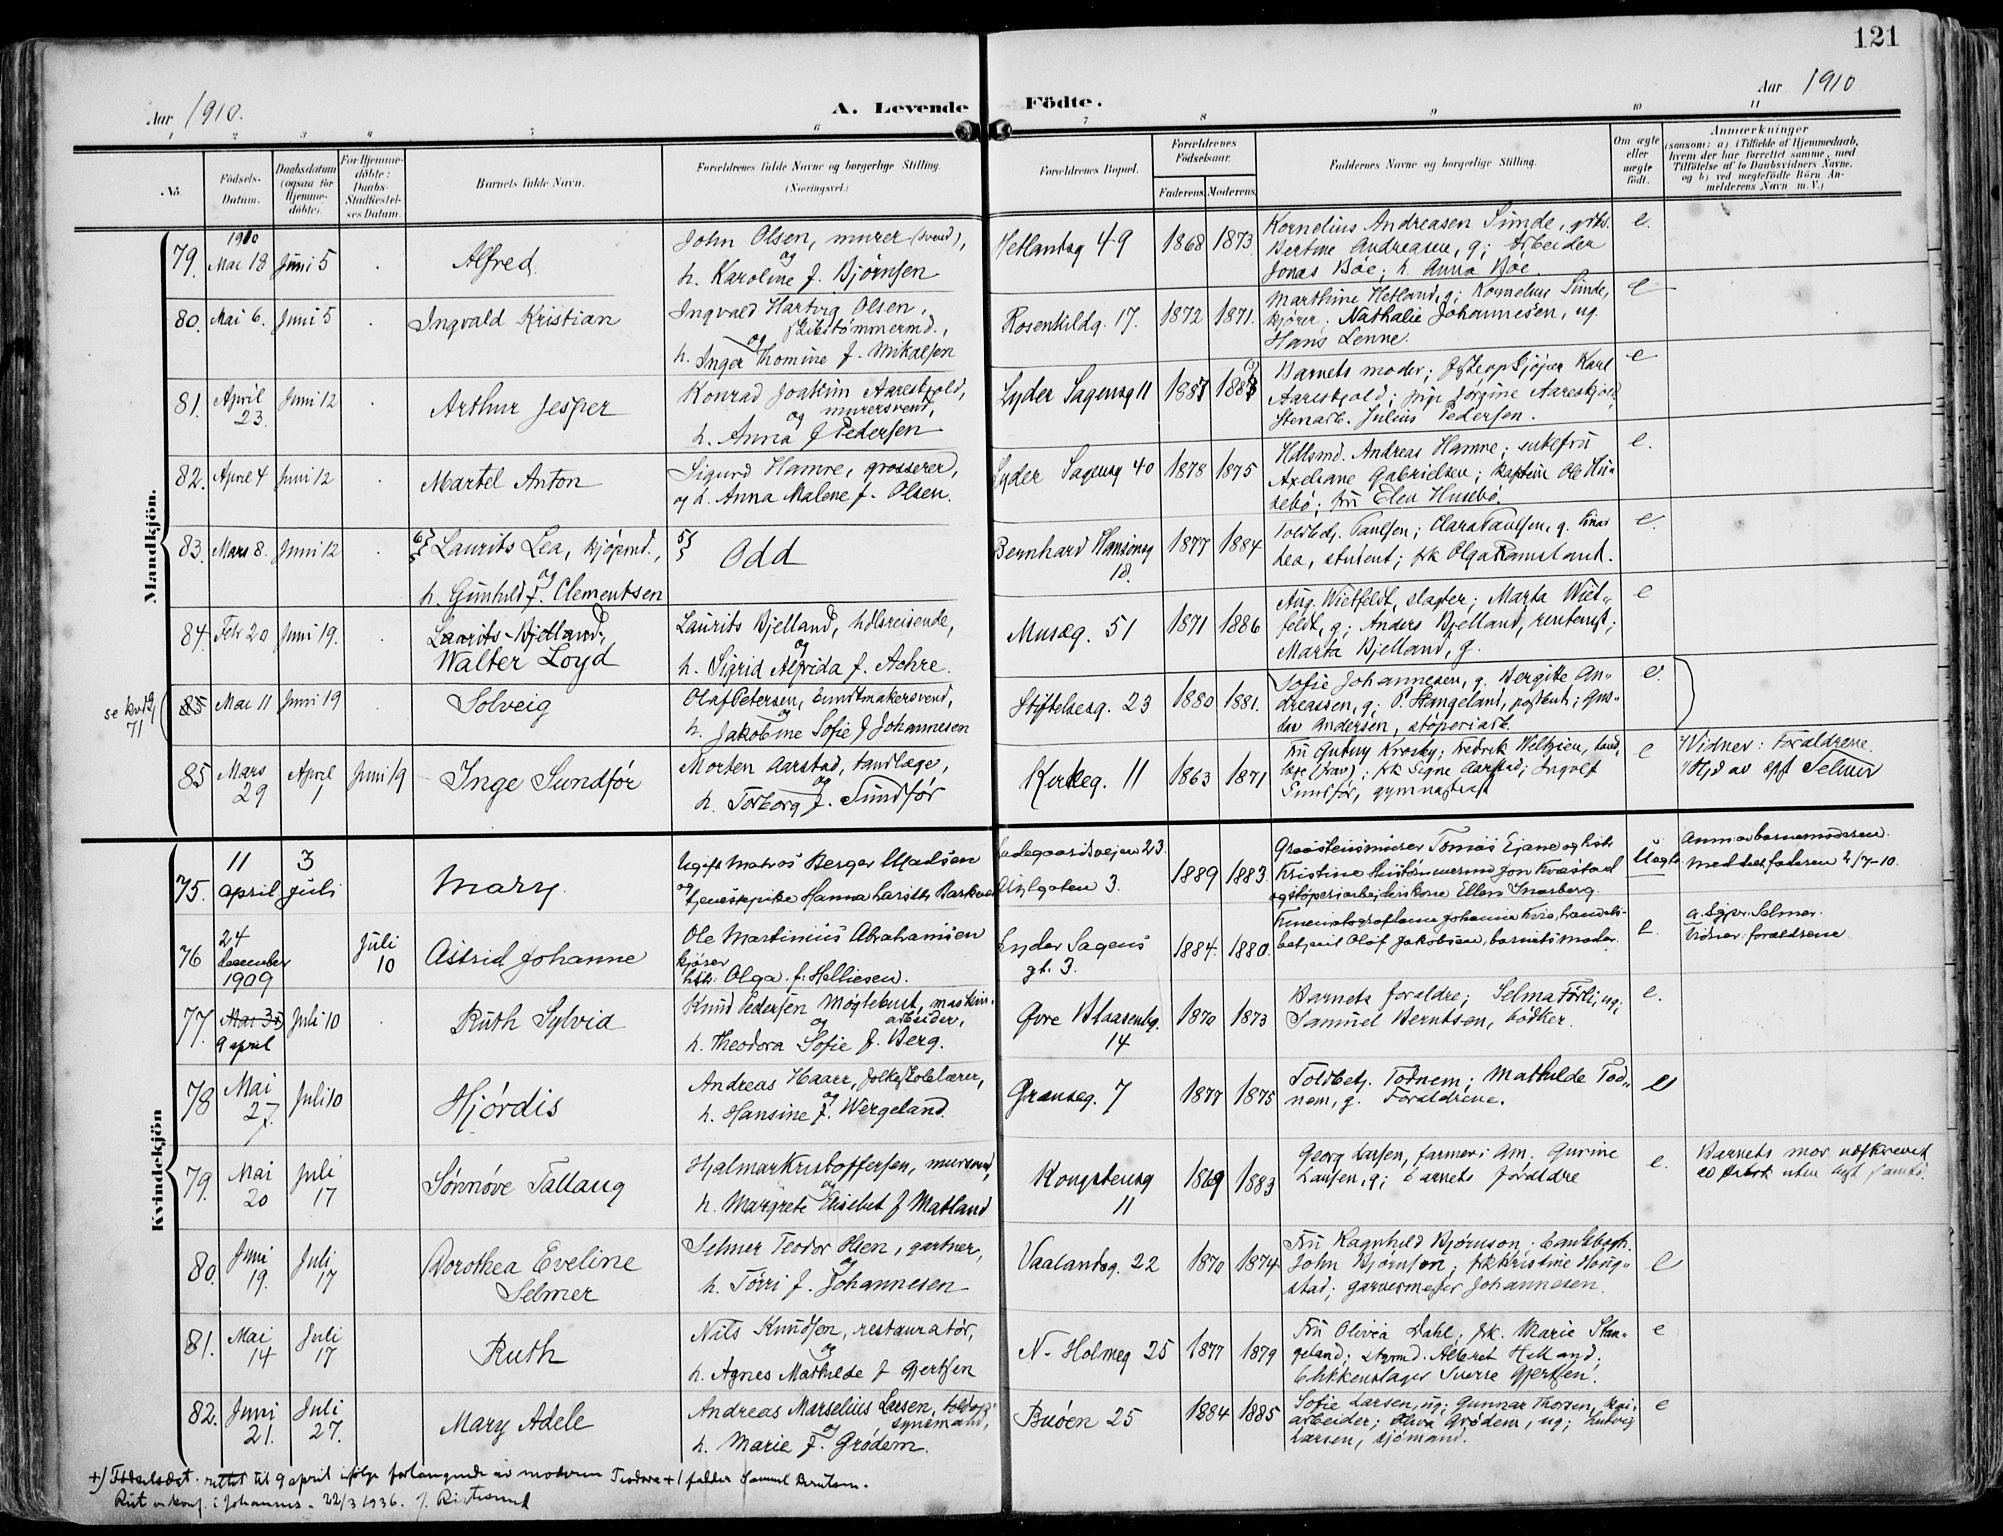 121
Aar 1910.
A. Levende Födte.
Aar 1910
1 2 3 4 5 6 7 8 9 10 11
No
Födsels-Datum.
Daabsdatum (ogsaa for Hjemme-döbte).
For Hjemme-döbte: Daabs-Stadfæstel-ses Datum.
Barnets fulde Navn.
Forældrenes fulde Navne og borgerlige Stilling.
(Næringsvei.)
Forældrenes Bopæl.
Forældrenes Födselsaar.
Faderens. Moderens.
Faddernes Navne og borgerlige Stilling.
Om ægte eller uægte födt.
Anmærkninger
(saasom: a) i Tilfælde af Hjemmedaab, hvem der har forrettet samme, med Tilföielse af to Daabsvidners Navne, og b) ved uægtefödte Börn An-melderens Navn m. V.)
Mandkjön.
79. 1910 Mai 18 Juni 5 Alfred.
John Olsen, murer (svend),
og
h. Karoline f. Bjørnsen
Hetlandsg 49 1868 1873
Kornelius Andreasen Sunde,
Bertine Andreasen, g; Arbeider
Jonas Bøe; h. Anna Bøe.
e.
80. Mai 6. Juni 5 Ingvald Kristian
Ingvald Hartvig Olsen,
skibstømmermd.,
og
h. Inger Thomine f. Mikalsen
Rosenkildg. 17. 1872 1871.
Marthine Hetland, g; Kornelius Sunde,
kjører; Nathalie Johannesen, ug.
Hans Lenne.
e
81. April 23. Juni 12 Arthur Jesper
Konrad Joakim Aareskjold,
og murersvend,
h. Anna f Pedersen
Lyder Sagensg 11
Barnets moder; Karl
Aareskjold; Jørgine Aareskjold,
Stenarb. Julius Pedersen.
e
82. April 4 Juni 12 Martel Anton
Sigurd Hamre, grosserer,
og h. Anna Malene f. Olsen.
Lyder Sagensg 40 1878 1875
Hdlsmd. Andreas Hamre; enkefru
Axeliane Gabrielsen; kaptein Ole Hu-
sebø; fru Elen Husebø.
e.
83. Mars 8. Juni 12
Laurits Lea, kjøpmd.,
og
h. Gunhild f. Clementsen
Odd
Bernhard Hansensg 18. 1877 1884
Toldbetj. Paulsen; Clara Paulsen, g. Einar
Lea, student; frk Olga Ramsland.
e.
84. Febr 20 Juni 19.
Laurits Bjelland,
Walter Loyd
Laurits Bjelland, hdlsreisende,
og
h. Sigrid Alfrida f. Achre.
Musæg. 51 1871 1886
Aug. Wietfeldt, slagter; Marta Wiet-
feldt, g; Anders Bjelland, rentenist;
Marta Bjelland, g.
e
se kvk 71
85 Mai 11 Juni 19 Solveig
Olaf Petersen, buntmakersvend,
og
h. Jakobine Sofie f Johannesen
Stiftelsesg. 23 1880 1881.
Sofie Johannesen, g. Bergitte An-
dreassen, g; P. Hangeland, postbud; Gus-
tav Andersen, støperiarb.
e.
85 Mars 29 April 1 Juni 19 Inge Sundfør
Morten Aarstad, tandlæge,
og
h. Torborg f. Sundfør
Kirkeg. 11 1863 1871
Fru Gutny Krosby; Fredrik Weltzien, tand-
læge; frk Signe Aarstad; Ingolf
Sundfør, gymnasiast
e
Vidner: Forældrene.
Hjd av spr Selmer
Kvindekjön
75. 11 april 3 juli Mary.
Ugift Matros Berger Madsen
og
tjenestepike Hanna
Ladegaardsveien 23.
Asylgaten 3. 1889 1883
Graastensmurer Tomas Ejane og hstr
Kristine Jon Kvæstad
og støperiarbeiderskone Ellen Smørberg.
Uægte
Anm av barnemoderen.
med barnefaderen 2/7-10.
76 24 december 1909 Juli 10 Astrid Johanne
Ole Martinius Abrahamsen
kjører
hstr. Olga f. Helliesen.
Lyder Sagens gt. 3. 1884. 1880.
Johanne Fure, handels-
betjent Olaf Jakobsen, barnets moder.
e.
a. Sgpr. Selmer.
Vidner: forældrene
77. Mai 30 9 april Juli 10 Ruth Sylvia
Knud Pedersen Møglebust, maskin-
og arbeider,
h. Theodora Sofie f. Berg.
Øvre Blaasenbg. 14 1870 1873
Barnets forældre; Selma Førli, ug;
Samuel Berntsen, bødker.
e.
78 Mai 27. Juli 10 Hjørdis
Andreas Haarr, folkeskolelærer,
og
h. Hansine f. Wergeland.
Grænseg. 7 1877 1875
Toldbetj. Todnem; Mathilde Tod-
nem, g. Forældrene.
e
79. Mai 20 Juli 17 Sønnøve Tallaug
Hjalmar Kristoffersen, mursvend,
og
h. Margrete Elisebet f Matland
Kongstensg 11 1869 1883
Georg Larsen, farmer i Am. Gurine
Larsen, g; barnets forældre
e.
Barnets mor utskrevet
uten
80. Juni 19. Juli 17 Dorothea Eveline
Selmer
Selmer Teodor Olsen, gartner,
og
h. Tørri f. Johannesen
Vaalandsg. 22 1870 1874
Fru Ragnhild Bjørnson;
John Bjørnson; frk Kristine Haug-
stad; garvermester Johannesen.
e
81. Mai 14 Juli 17 Ruth
Nils Knudsen, restauratør,
og
h. Agnes Mathilde f Gjertsen
N. Holmeg 25 1877 1879
Fru Olivia Dahl; frk. Marie Stan-
geland; styrmd. Albert Helland;
blikkenslager Sverre Gjertsen.
e
82. Juni 21. Juli 27. Mary Adele
Andreas Marselius Larsen, toldop-
og synsmand,
h. Marie f. Grødem.
Buøen 25 1884 1885
Sofie Larsen, ug; Gunnar Thorsen,
arbeider; Oliva Grødem, ug; Ludvig
Larsen, sjømand.
e
+) Fødselsdat. rettet til 9 april ifølge forlangende av moderen Teodora + fadder Samuel Berntsen.
Rut er konf. i Johannes. 22/3 1936.